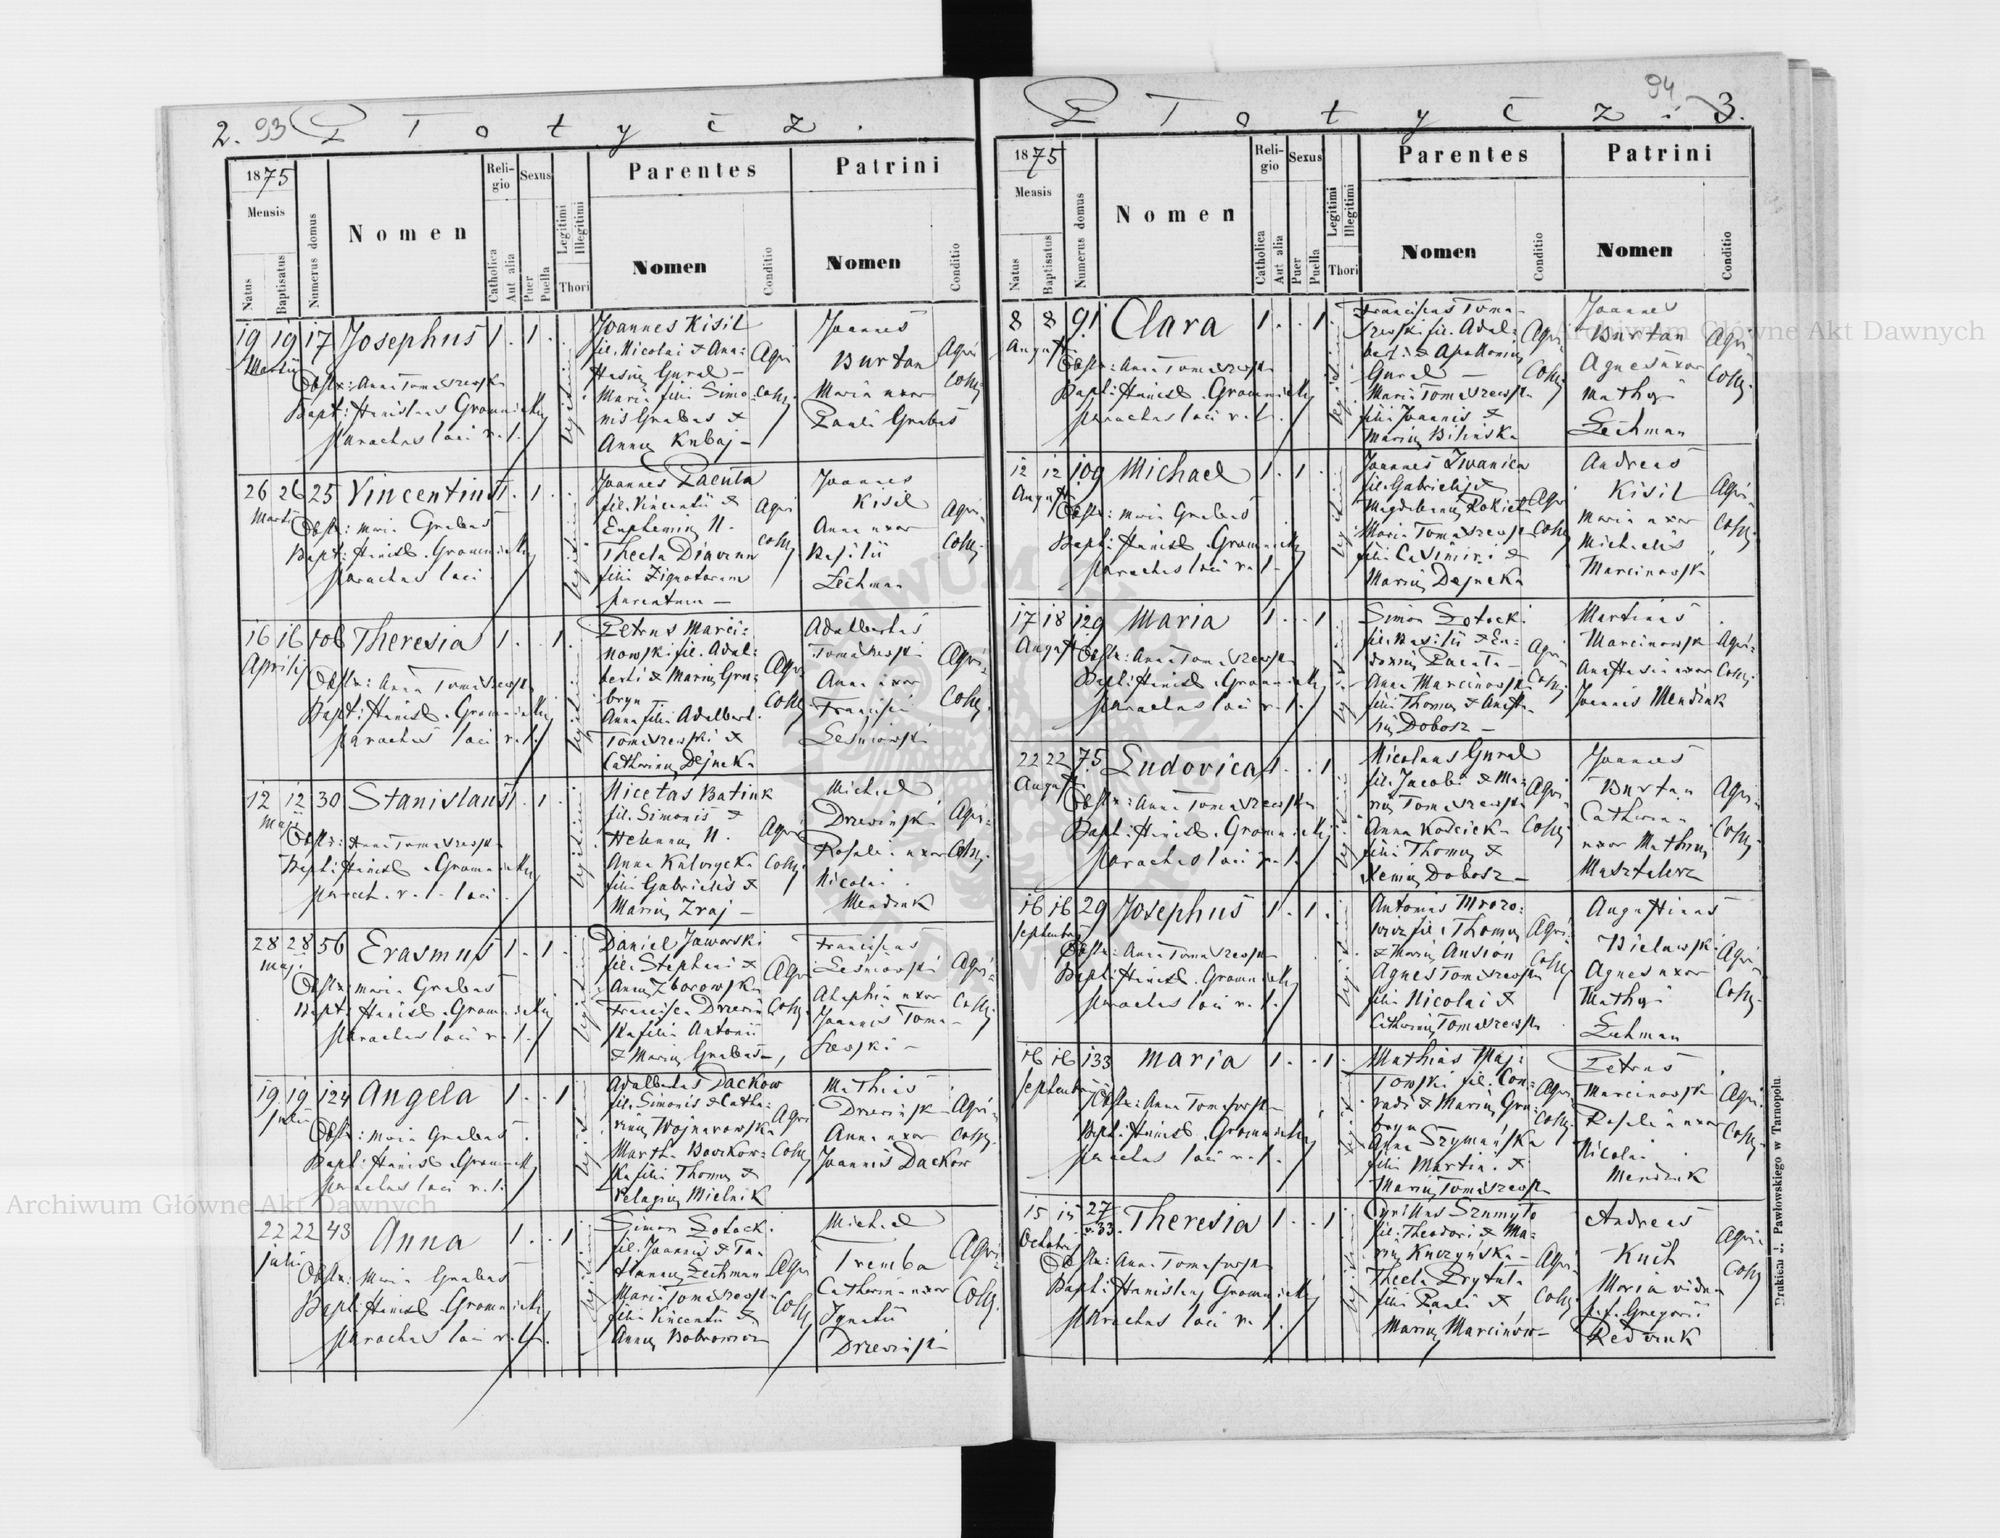 2. 93 P T o t y c z .
1875
Mensis
Natus
Baptisatus
Numerus domus
Nomen
Religio
Catholica
Aut alia
Sexus
Puer
Puella
Legitimi
Illegitimi
Thori
Parentes
Nomen
Conditio
Patrini
Nomen
Conditio
19 19 17 Josephus 1 . 1 .
Martii
Obstx: Anna Tomaszewska
Bapt: Stanislaus Gromnicki
parochus loci r. l.
Joannes Kisil
fil. Nicolai & Ana-
stasiæ Gural –
Maria filia Simo-
nis Grabas &
Annæ Kubaj –
Agri
colæ
Joannes
Burtan
Maria uxor
Pauli Grabas
Agri
colæ
26 26 25 Vincentius 1 . 1 .
Martii
Obstx: Maria Grabas
Bapt: Stanisl. Gromnicki
parochus loci
Joannes Pacuła
fil. Vincentii &
Euphemiæ N.
Thecla
filia Ignotorum
parentum –
Agri
colæ
Joannes
Kisil
Anna uxor
Basilii
Lechman
Agri-
colæ
16 16 106 Theresia 1 . . 1
Aprilis
Obstx: Anna Tomaszewska
Bapt: Stanisl. Gromnicki
parochus loci r. l.
Petrus Marci-
nowski fil. Adal-
berti & Mariæ Gra-
bryn –
Anna filia Adalbert.
Tomaszewski &
Catharinæ Dejneka
Agri
colæ
Adalbertus
Tomaszewski
Anna uxor
Francisci
Leśniowski
Agri-
colæ
12 12 30 Stanislaus 1 . 1 .
Maji
Obstx: Anna Tomaszewska
Bapt: Stanisl. Gromnicki
paroch. r. l. loci
Nicetas Batiuk
fil. Simonis &
Helenæ N.
Anna Kulczycka
filia Gabrielis &
Mariæ Zraj –
Agri
colæ
Michael
Drzewiński
Rosalia uxor
Nicolai
Mendzuk
Agri-
colæ
28 28 56 Erasmus 1 . 1 .
Maji
Obstx: Maria Grabas
Bapt: Stanisl. Gromnicki
parochus loci r. l.
Daniel Jaworski
fil. Stephani &
Annæ Zborowska
Francisca Drzewiń-
ska filia Antonii
& Mariæ Grabas –
Agri
colæ
Franciscus
Leśniowski
Agaphia uxor
Joannis Toma-
szewski –
Agri-
colæ
19 19 124 Angela 1 . . 1
Julii
Obstx: Maria Grabas
Bapt: Stanisl. Gromnicki
parochus loci r. l.
Adalbertus Dackow
fil. Simonis & Catha-
rinæ Wojnarowska
Martha
filia Thomæ &
Pelagiæ Mielnik
Agri
colæ
Mathias
Drzewiński
Anna uxor
Joannis Dackow
Agri-
colæ
22 22 43 Anna 1 . . 1
Julii
Obstx: Maria Grabas
Bapt: Stanisl. Gromnicki
parochus loci r. l.
Simon Potocki
fil. Joannis & Ta-
tiannæ Lechman
Maria Tomaszewska
filia Vincentii &
Annæ Bobrowicz
Agri
colæ
Michael
Tremba
Catharina uxor
Ignatii
Drzewiński
Agri-
colæ
P T o t y c z . 94 3.
1875
Mensis
Natus
Baptisatus
Numerus domus
Nomen
Religio
Catholica
Aut alia
Sexus
Puer
Puella
Legitimi
Illegitimi
Thori
Parentes
Nomen
Conditio
Patrini
Nomen
Conditio
8 8 91 Clara 1 . . 1
Augusti
Obstx: Anna Tomaszewska
Bapt: Stanisl. Gromnicki
parochus loci r. l.
Franciscus Toma-
szewski fil. Adal-
berti & Apolloniæ
Gural –
Maria Tomaszewska
filia Joannis &
Mariæ Bilińska
Agri-
colæ
Joannes
Burtan
Agnes uxor
Mathæi
Lechman
Agri-
colæ
12 12 109 Michael 1 . 1 .
Augusti
Obstx: Maria Grabas
Bapt: Stanisl. Gromnicki
parochus loci r. l.
Joannes Iwanica
fil. Gabrielis &
Magdalenæ Rokieta
Maria Tomaszewska
filia Casimiri &
Mariæ Dejneka
Agri
colæ
Andreas
Kisil
Maria uxor
Michaelis
Marcinowski
Agri-
colæ
17 18 129 Maria 1 . . 1
Augusti
Obstx: Anna Tomaszewska
Bapt: Stanisl. Gromnicki
parochus loci r. l.
Simon Potocki
fil. Basilii & Eu-
doxiæ Pacuła –
Anna Marcinowska
filia Thomæ & Anasta-
siæ Dobosz –
Agri
colæ
Martinus
Marcinowski
Anastasia uxor
Joannis Mendzuk
Agri-
colæ
22 22 75 Ludovica 1 . . 1
Augusti
Obstx: Anna Tomaszewska
Bapt: Stanisl. Gromnicki
parochus loci r. l.
Nicolaus Gural
fil. Jacobi & Ma-
riæ Tomaszewska
Anna Kościcka
filia Thomæ &
Xeniæ Dobosz –
Agri-
colæ
Joannes
Burtan
Catharina
uxor Mathiæ
Masztalerz
Agri-
colæ
16 16 29 Josephus 1 . 1 .
Septembris
Obstx: Anna Tomaszewska
Bapt: Stanisl. Gromnicki
parochus loci r. l.
Antonius Mrozo-
wicz fil. Thomæ
& Mariæ Ausion
Agnes Tomaszewska
filia Nicolai &
Catharinæ Tomaszewska
Agri-
colæ
Augustinus
Bielawski
Agnes uxor
Mathæi
Lechman
Agri-
colæ
16 16 133 Maria 1 . . 1
Septembris
Obstx: Anna Tomaszewska
Bapt: Stanisl. Gromnicki
parochus loci r. l.
Mathias Maj-
fil. Con-
radi & Mariæ Gra-
bryn
Anna Szymańska
filia Martini &
Mariæ Tomaszewska
Agri
colæ
Petrus
Marcinowski
Rosalia uxor
Nicolai
Mendzuk
Agri-
colæ
15 15 27 Theresia 1 . . 1
33
Octobris
Obstx: Anna Tomaszewska
Bapt: Stanislaus Gromnicki
parochus loci r. l.
Cyrillus Szumyło
fil. Theodori & Ma-
riæ Kuczyńska –
Thecla Prytuła
filia Pauli &
Mariæ Marcinow–
Agri-
colæ
Andreas
Kuch
Maria vidua
p. f. Gregorii
Redczuk
Agri-
colæ
Drukiem J. Pawłowskiego w Tarnopolu.
Archiwum Główne Akt Dawnych
Archiwum Główne Akt Dawnych